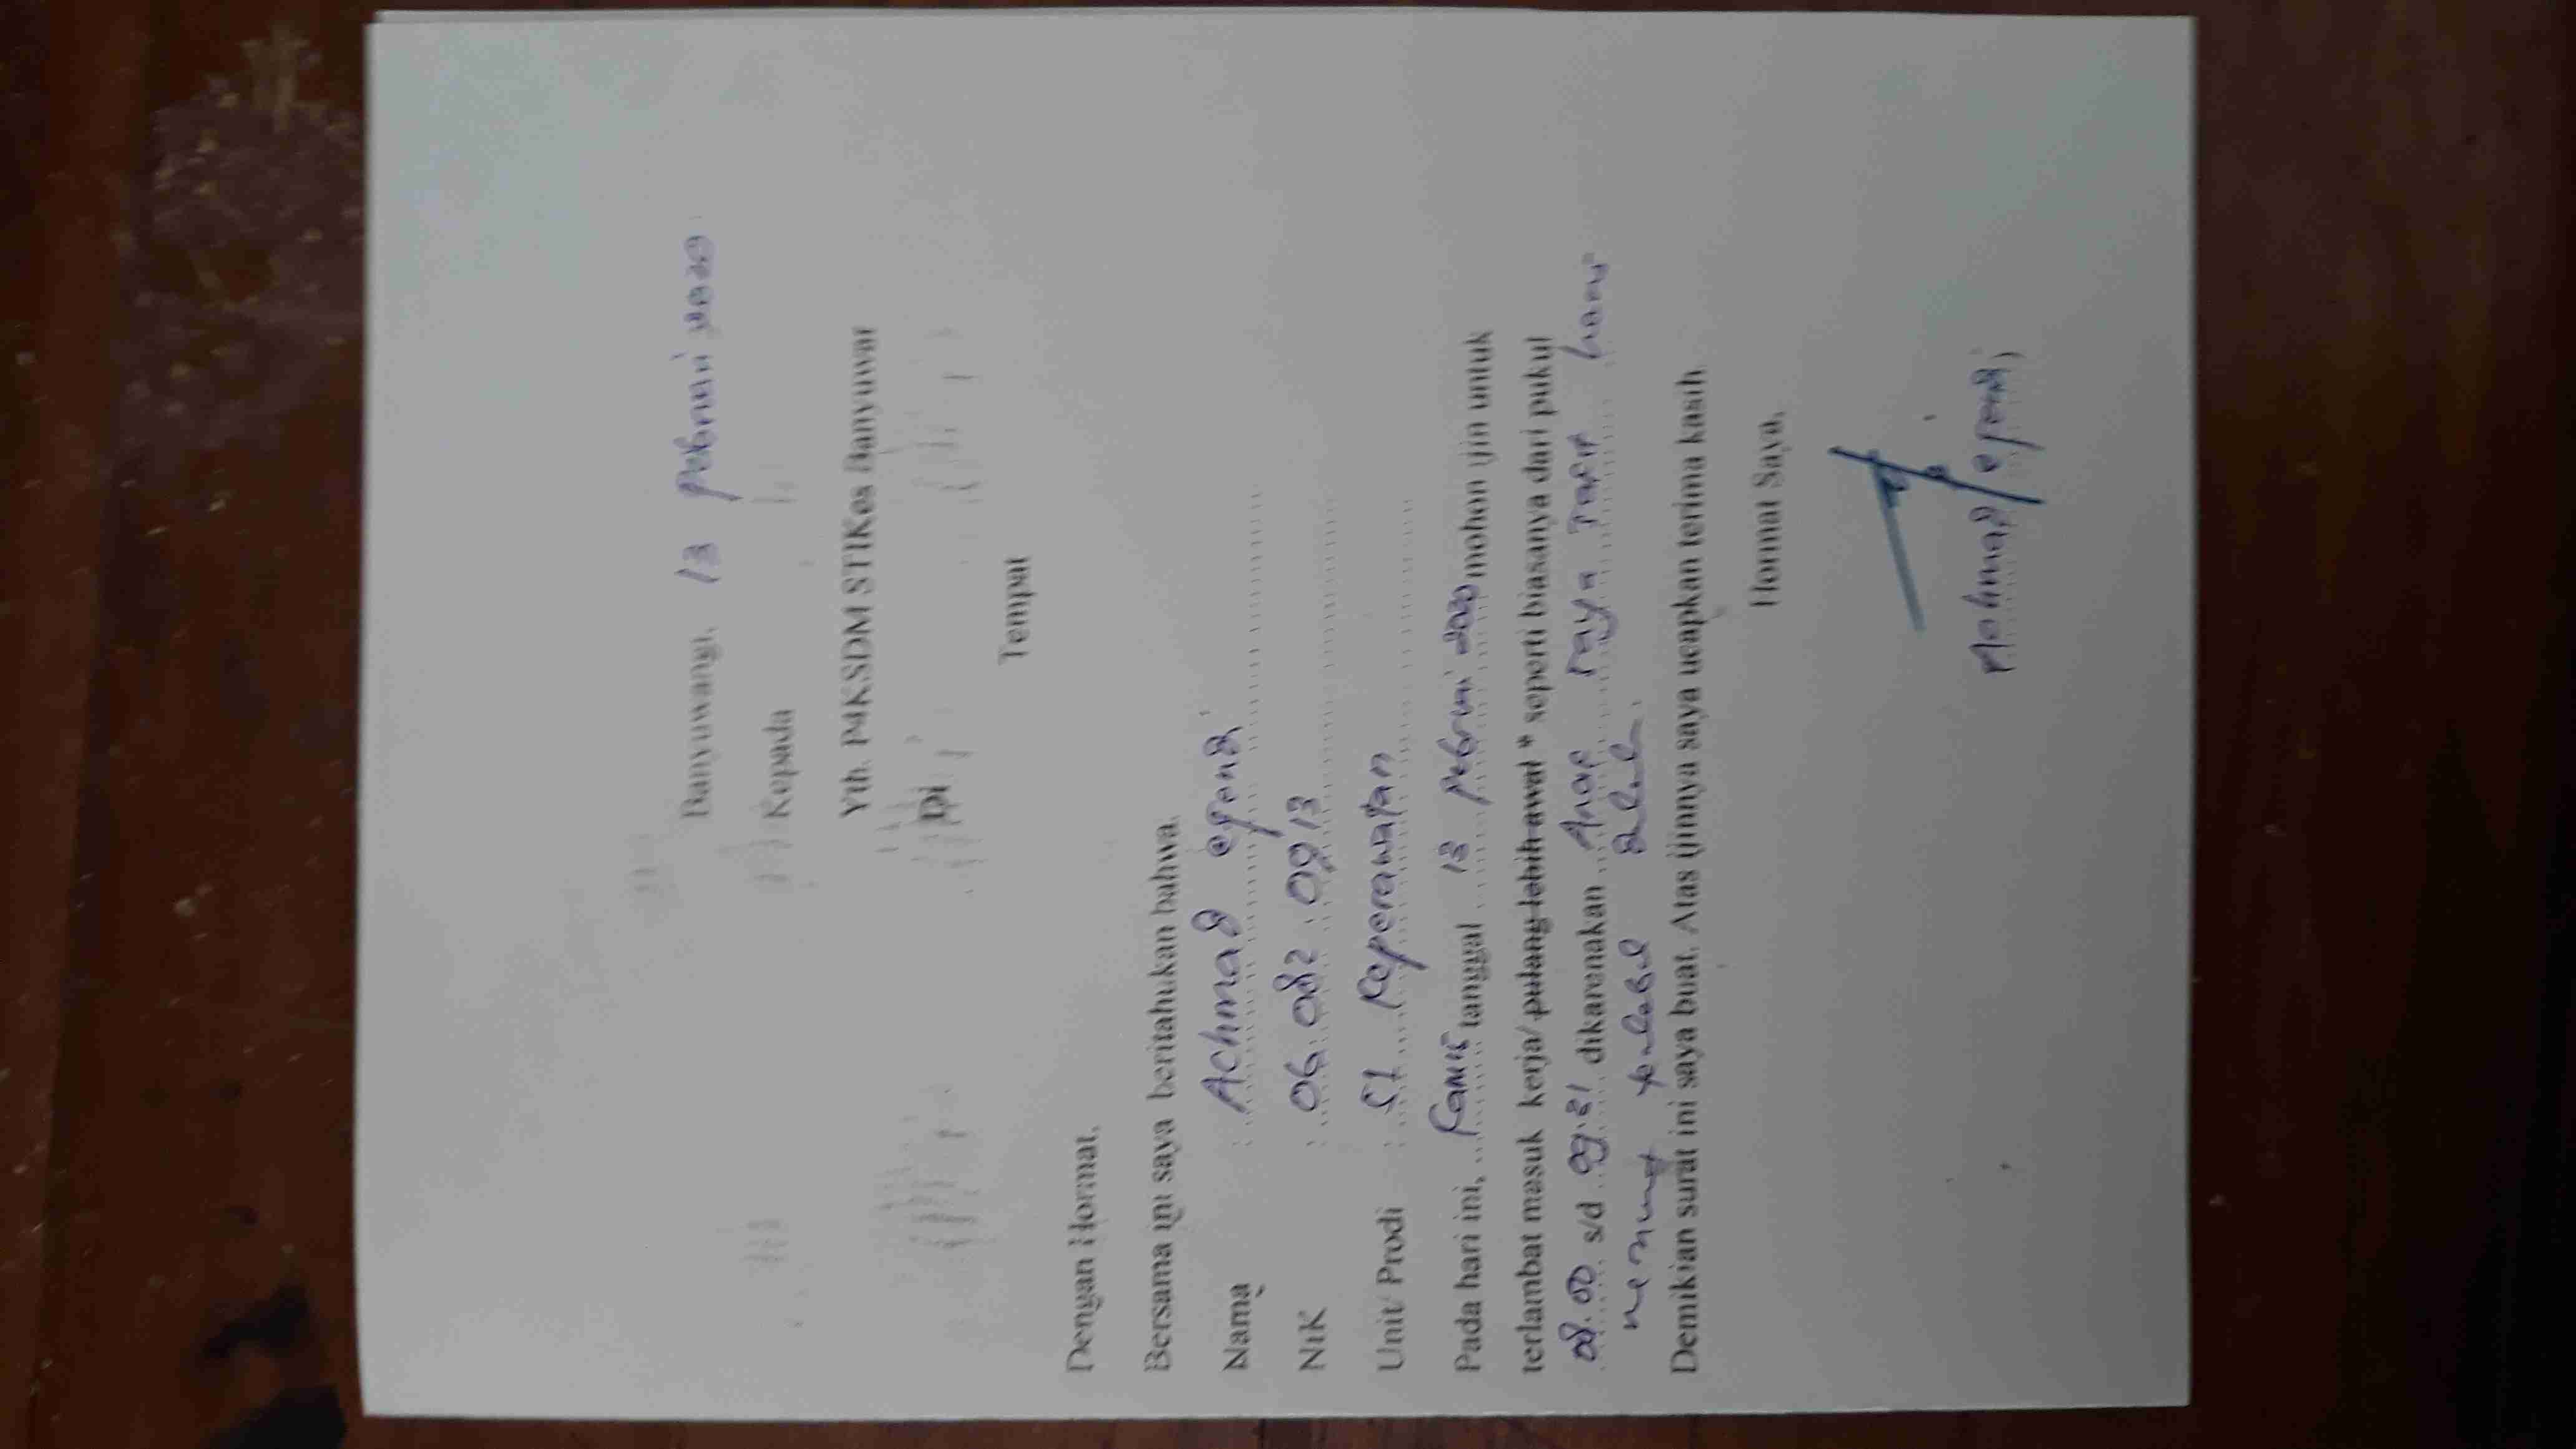 Banyuwangi, 13 Februari 2020
Kepada
Yth. P4KSDM STIKes Banyuwa
Di
Tempat
Dengan Hormat,
Bersama ini saya beritahukan bahwa,
Nama : Achmad efendi
NIK : 06.082.0913
Unit/ Prodi : S1 Keperawatan
Pada hari ini, Kamis tanggal 13 Februari 2020 mohon ijin untuk
terlambat masuk kerja/ pulang lebih awal * seperti biasanya dari pukul
08.00 s/d 09.21 dikarenakan Anak saya sakit harus
Demikian surat ini saya buat. Atas ijinnya saya ucapkan terima kasih
Hormat Saya,
Achmad efendi